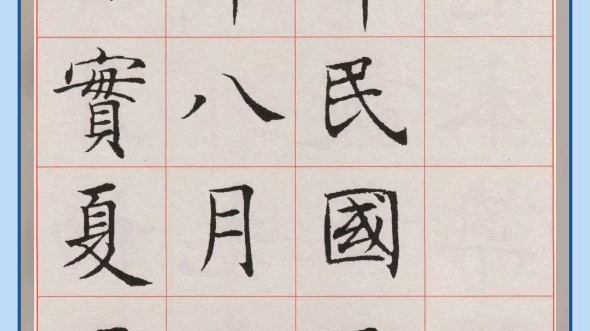 民國
八月
實夏